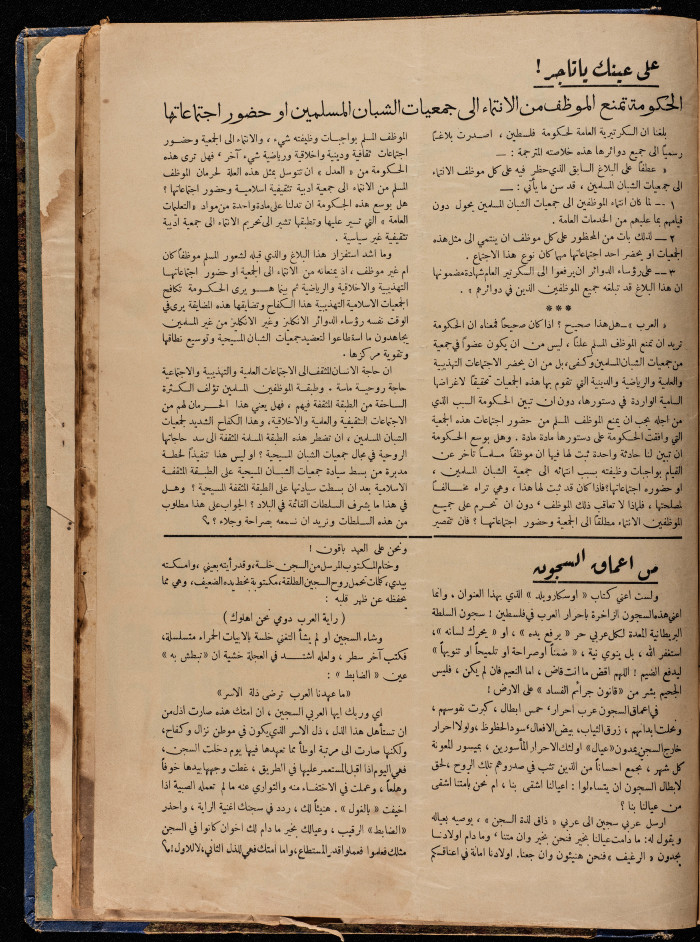 على عينك يا تاجر !
الحكومة تمنع الموظف من الانتماء الى جمعيات الشبان المسلمين او حضور اجتماعاتها
بلغنا ان السكرتيرية العامة لحكومة فلسطين ، اصدرت بلاغاً
رسمياً الى جميع دوائرها هذه خلاصته المترجمة : —
« عطفاً على البلاغ السابق الذي حظر فيه على كل موظف الانتماء
الى جمعيات الشبان المسلمين ، قد سن ما يأتي : —
١ — لما كان انتماء الموظفين الى جمعيات الشبان المسلمين يحول دون
قيامهم بما عليهم من الخدمات العامة .
٢ — لذلك بات من المحظور على كل موظف ان ينتمي الى مثل هذه
الجمعيات او يحضر احد اجتماعاتها مهما كان نوع هذا الاجتماع .
٣ — على رؤساء الدوائر ان يرفعوا الى السكرتير العام شهادة مضمونها
ان هذا البلاغ قد تبلغه جميع الموظفين الذين في دوائرهم » .
***
« العرب » — هل هذا صحيح ؟ اذا كان صحيحاً فمعناه ان الحكومة
تريد ان تمنع الموظف المسلم علناً ، ليس من ان يكون عضواً في جمعية
من جمعيات الشبان المسلمين وكفى ، بل من ان يحضر الاجتماعات التهذيبية
والعلمية والرياضية والدينية التي تقوم بها هذه الجمعيات تحقيقاً لاغراضها
السامية الواردة في دستورها ، دون ان تبين الحكومة السبب الذي
من اجله يجب ان يمنع الموظف المسلم من حضور اجتماعات هذه الجمعية
التي وافقت الحكومة على دستورها مادة مادة . وهل بوسع الحكومة
ان تبين لنا حادثة واحدة ثبت لها فيها ان موظفاً مسلماً تأخر عن
القيام بواجبات وظيفته بسبب انتمائه الى جمعية الشبان المسلمين ،
او حضوره اجتماعاتها ؟ فاذا كان قد ثبت لها هذا ، وهي تراه مخالفاً
لمصلحتها ، فلماذا لا تعاقب ذلك الموظف ، دون ان تحرم على جميع
الموظفين الانتماء مطلقاً الى الجمعية وحضور اجتماعاتها ؟ فان تقصير
الموظف المسلم بواجبات وظيفته شيء ، والانتماء الى الجمعية وحضور
اجتماعات ثقافية ودينية واخلاقية ورياضية شيء آخر ، فهل ترى هذه
الحكومة من « العدل » ان تتوسل بمثل هذه العلة لحرمان الموظف
المسلم من الانتماء الى جمعية ادبية تثقيفية اسلامية وحضور اجتماعاتها ؟
هل بوسع هذه الحكومة ان تدلنا على مادة واحدة من مواد « التعليمات
العامة » التي تسير عليها وتطبقها تشير الى تحريم الانتماء الى جمعية ادبية
تثقيفية غير سياسية .
وما اشد استفزاز هذا البلاغ والذي قبله لشعور المسلم موظفاً كان
ام غير موظف ، اذ يمنعانه من الانتماء الى الجمعية او حضور اجتماعاتها
التهذيبية والاخلاقية والرياضية ثم بينما هو يرى الحكومة تكافح
الجمعيات الاسلامية التهذيبية هذا الكفاح وتضايقها هذه المضايقة يرى في
الوقت نفسه رؤساء الدوائر الانكليز وغير الانكليز من غير المسلمين
يجاهدون ما استطاعوا لتعضيد جمعيات الشبان المسيحية وتوسيع نطاقها
وتقوية مركزها .
ان حاجة الانسان المثقف الى الاجتماعات العلمية والتهذيبية والاجتماعية
حاجة روحية ماسة . وطبقة الموظفين المسلمين تؤلف الكثرة
الساحقة من الطبقة المثقفة فيهم ، فهل يعني هذا الحرمان لهم من
الاجتماعات التثقيفية والعلمية والاخلاقية ، وهذا الكفاح الشديد لجمعيات
الشبان المسلمين ، ان تضطر هذه الطبقة المسلمة المثقفة الى سد حاجاتها
الروحية في مجال جمعيات الشبان المسيحية ؟ او ليس هذا تنفيذاً لخطة
مدبرة من بسط سيادة جمعيات الشبان المسيحية على الطبقة المثقفة
الاسلامية بعد ان بسطت سيادتها على الطبقة المثقفة المسيحية ؟ وهل
في هذا ما يشرف السلطات القائمة في البلاد ؟ الجواب على هذا مطلوب
من هذه السلطات ونريد ان نسمعه بصراحة وجلاء ؟ ؟
من اعماق السجون
ولست اعني كتاب « اوسكار ويلد » الذي بهذا العنوان . وانما
اعني هذه السجون الزاخرة باحرار العرب في فلسطين ! سجون السلطة
البريطانية المعدة لكل عربي حر « يرفع يده » ، او « يحرك لسانه » ،
استغفر الله ، بل ينوي نية ، « ضمناً او صراحة او تلميحاً او تنويهاً »
ليدفع الضيم ! اللهم اقض ما انت قاض ، اما النعيم فان لم يكن ، فليس
الجحيم بشر من « قانون جرائم الفساد » على الارض !
في اعماق السجون عرب احرار ، خمس ابطال ، كبرت نفوسهم ،
ونحلت ابدانهم ، زرق الثياب ، بيض الافعال ، سود الحظوظ ، ولولا احرار
خارج السجن يمدون « عيال » اولئك الاحرار المأسورين ، بميسور المعونة
كل شهر ، بجمع احساناً من الذين تثب في صدرهم تلك الروح ، لحق
لابطال السجون ان يتساءلوا : اعيالنا اشقى بنا ، ام نحن بامتنا اشقى
من عيالنا بنا ؟
ارسل عربي سجين الى عربي « ذاق لذة السجن » ، يوصيه بعياله
ويقول له : ما دامت عيالنا بخير فنحن بخير وان متنا ، وما دام اولادنا
يجدون « الرغيف » فنحن هنيئون وان جعنا . اولادنا امانة في اعناقكم
ونحن على العهد باقون !
وختام المكتوب المرسل من السجن خلسة ، وقد رأيته بعيني ، وامسكته
بيدي ، كلمات تحمل روح السجين الطلقة ، مكتوبة بخط يده الضعيف ، وهي مما
يحفظه عن ظهر قلبه :
( راية العرب دومي نحن اهلوك )
وشاء السجين او لم يشأ التغني خلسة بالابيات الحمراء متسلسلة ،
فكتب آخر سطر ، ولعله اشتد في العجلة خشية ان « تبطش به »
عين « الضابط » :
« ما عهدنا العرب ترضى ذلة الاسر »
اي وربك ايها العربي السجين ، ان امتك هذه صارت اذل من
ان تستأهل هذا الذل ، ذل الاسر الذي يكون في موطن نزال وكفاح ،
ولكنها صارت الى مرتبة اوطأ مما تعهدها فيها يوم دخلت السجن ،
فهي اليوم اذا اقبل المستعمر عليها في الطريق ، غطت وجهها بيدها خوفاً
وهلعاً ، وعملت في الاختفاء منه والتواري عنه ما لم تعمله الصبية اذا
اخيفت « بالغول » . هنيئاً لك ، ردد في سجنك اغنية الراية ، واحذر
« الضابط » الرقيب ، وعيالك بخير ما دام لك اخوان كانوا في السجن
مثلك فعلموا فعملوا قدر المستطاع ، واما امتك فهي للذل الثاني ، لا للاول ! ؟